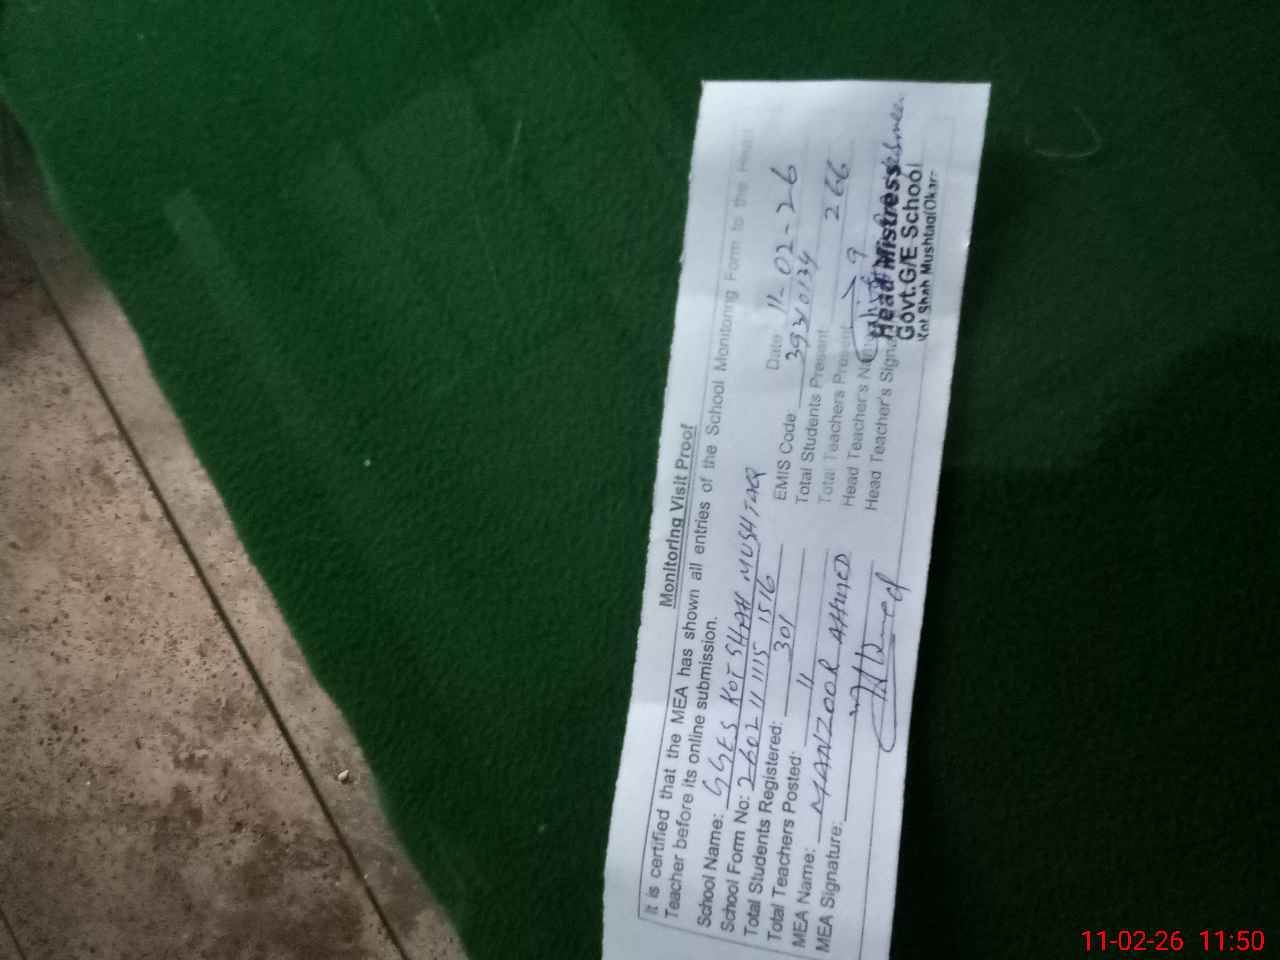 Monitoring Visit Proof
It is certified that the MEA has shown all entries of the School Monitoring Form to the Head
Teacher before its online submission.
School Name: GGES KOT SHAH MUSHTAQ Date 11-02-26
School Form No: 2602 11 1115 1516 EMIS Code 39310134
Total Students Registered: 301 Total Students Present 266
Total Teachers Posted: 11 Total Teachers Present 9
MEA Name: MANZOOR AHMED Head Teacher's
MEA Signature: Head Teacher's
Head Mistress
Govt.G/E School
Kot Shah Mushtaq(Okara
11-02-26 11:50